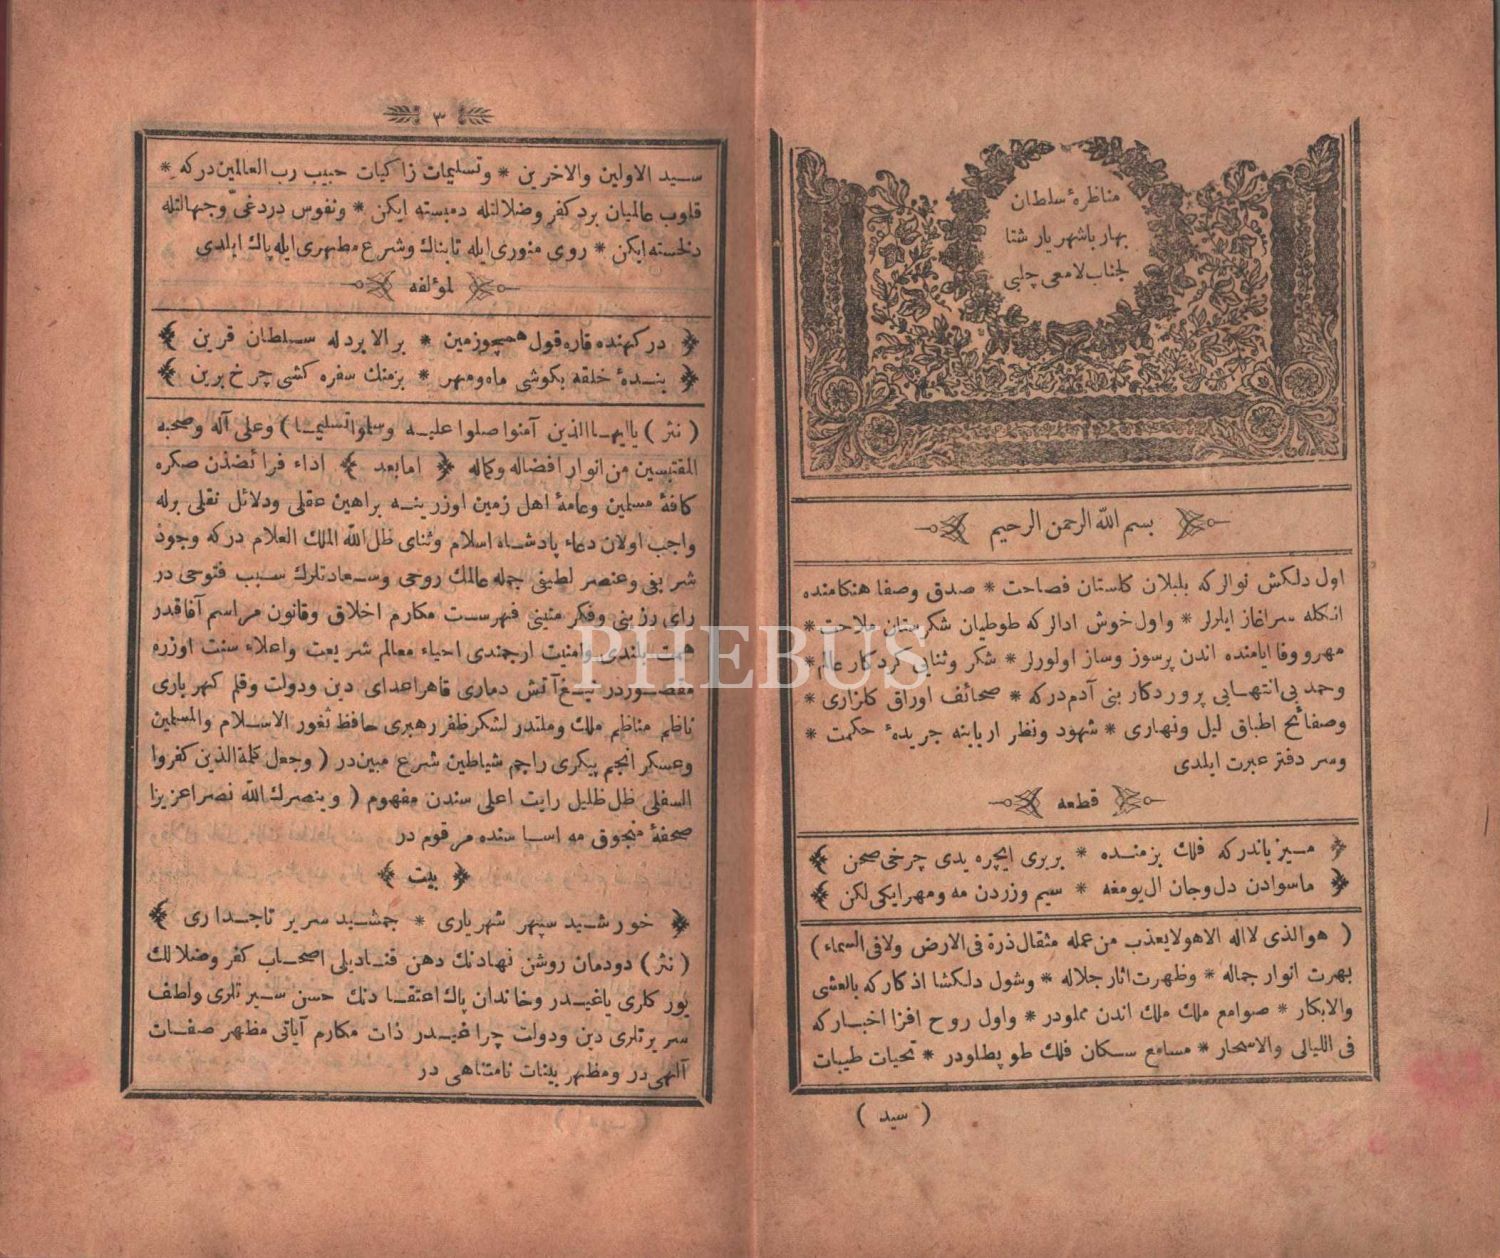 مناظرهٔ سلطان
بهار باشهریار شتا
لجناب لامعی چلبی
بسم الله الرحمن الرحیم
اول دلکش نوالرکه بلبلان کلستان فصاحت * صدق وصفا هنکامنده
انکله سرآغاز ایلرلر * واول خوش ادالرکه طوطیان شکرستان ملاحت *
مهر ووفا ایامنده اندن پرسوز وساز اولورلر * شکر وثنایی کردکار عالم *
وحمد بی انتهایی پروردکار بنی آدم درکه * صحائف اوراق کلزاری *
وصفائح اطباق لیل ونهاری * شهود ونظر اربابنه جریدهٔ حکمت *
وسر دفتر عبرت ایلدی
قطعه
مسیز باندرکه فلك بزمنده * بربری ایچره یدی چرخی صحن
ماسوادن دل وجان ال یومغه * سیم وزردن مه ومهر ایکی لکن
( هوالذی لااله الاهولایعذب من عمله مثقال ذرة فی الارض ولافی السماء )
بهرت انوار جماله * وظهرت اثار جلاله * وشول دلکشا اذکارکه بالعشی
والابکار * صوامع ملك ملك اندن مملودر * واول روح افزا اخبارکه
فی اللیالی والاسحار * مسامع سکان فلك طوپطلودر * تحیات طیبات
( سید )
٣
سید الاولین والاخرین * وتسلیمات زاکیات حبیب رب العالمین درکه *
قلوب عالمیان برد کفر وضلالتله دمبسته ایکن * ونفوس درد غی وجهالتله
دلخسته ایکن * روی منوری ایله تابناك وشرع مطهری ایله پاك ایلدی
لمؤلفه
درکهنده قاره قول همچو زمین * بر الا بردله سلطان قرین
بندهٔ حلقه بکوشی ماه ومهر * بزمنك سفره کشی چرخ برین
( نثر ) یاایها الذین آمنوا صلوا علیه وسلموا تسلیما ) وعلی آله وصحبه
المقتبسین من انوار افضاله وکماله ﴿ اما بعد ﴾ اداء فرائضدن صکره
کافهٔ مسلمین وعامهٔ اهل زمین اوزرینه براهین عقلی ودلائل نقلی برله
واجب اولان دعاء پادشاه اسلام وثنای ظل الله الملك العلام درکه وجود
شربنی وعنصر لطیفی جمله عالمك روحی وسعادتلرك سبب فتوحی در
رای رزینی وفکر متینی فهرست مکارم اخلاق وقانون مراسم آفاقدر
همت بلندی وامنیت ارجمندی احیاء معالم شریعت واعلاء سنت اوزره
مقصوردر تیغ آتش دماری قاهر اعدای دین ودولت وقلم کهرباری
ناظم مناظم ملك وملتدر لشکر ظفر رهبری حافظ ثغور الاسلام والمسلمین
وعسکر انجم پیکری راجم شیاطین شرع مبین در ( وجعل کلمة الذین کفروا
السفلی ظل ظلیل رایت اعلی سندن مفهوم ( وینصرك الله نصرا عزیزا
صحفهٔ منجوق مه اسا سنده مرقوم در
بیت
خورشید سپهر شهریاری * جمشید سریر تاجداری
( نثر ) دودمان روشن نهادنك دهن قنادیلی اصحاب کفر وضلالك
یورکلری یاغیدر وخاندان پاك اعتقادنك حسن سیرتلری ولطف
سریرتلری دین ودولت چراغیدر ذات مکارم آیاتی مظهر صفات
آلهی در ومظهر بینات نامتناهی در
PHEBUS